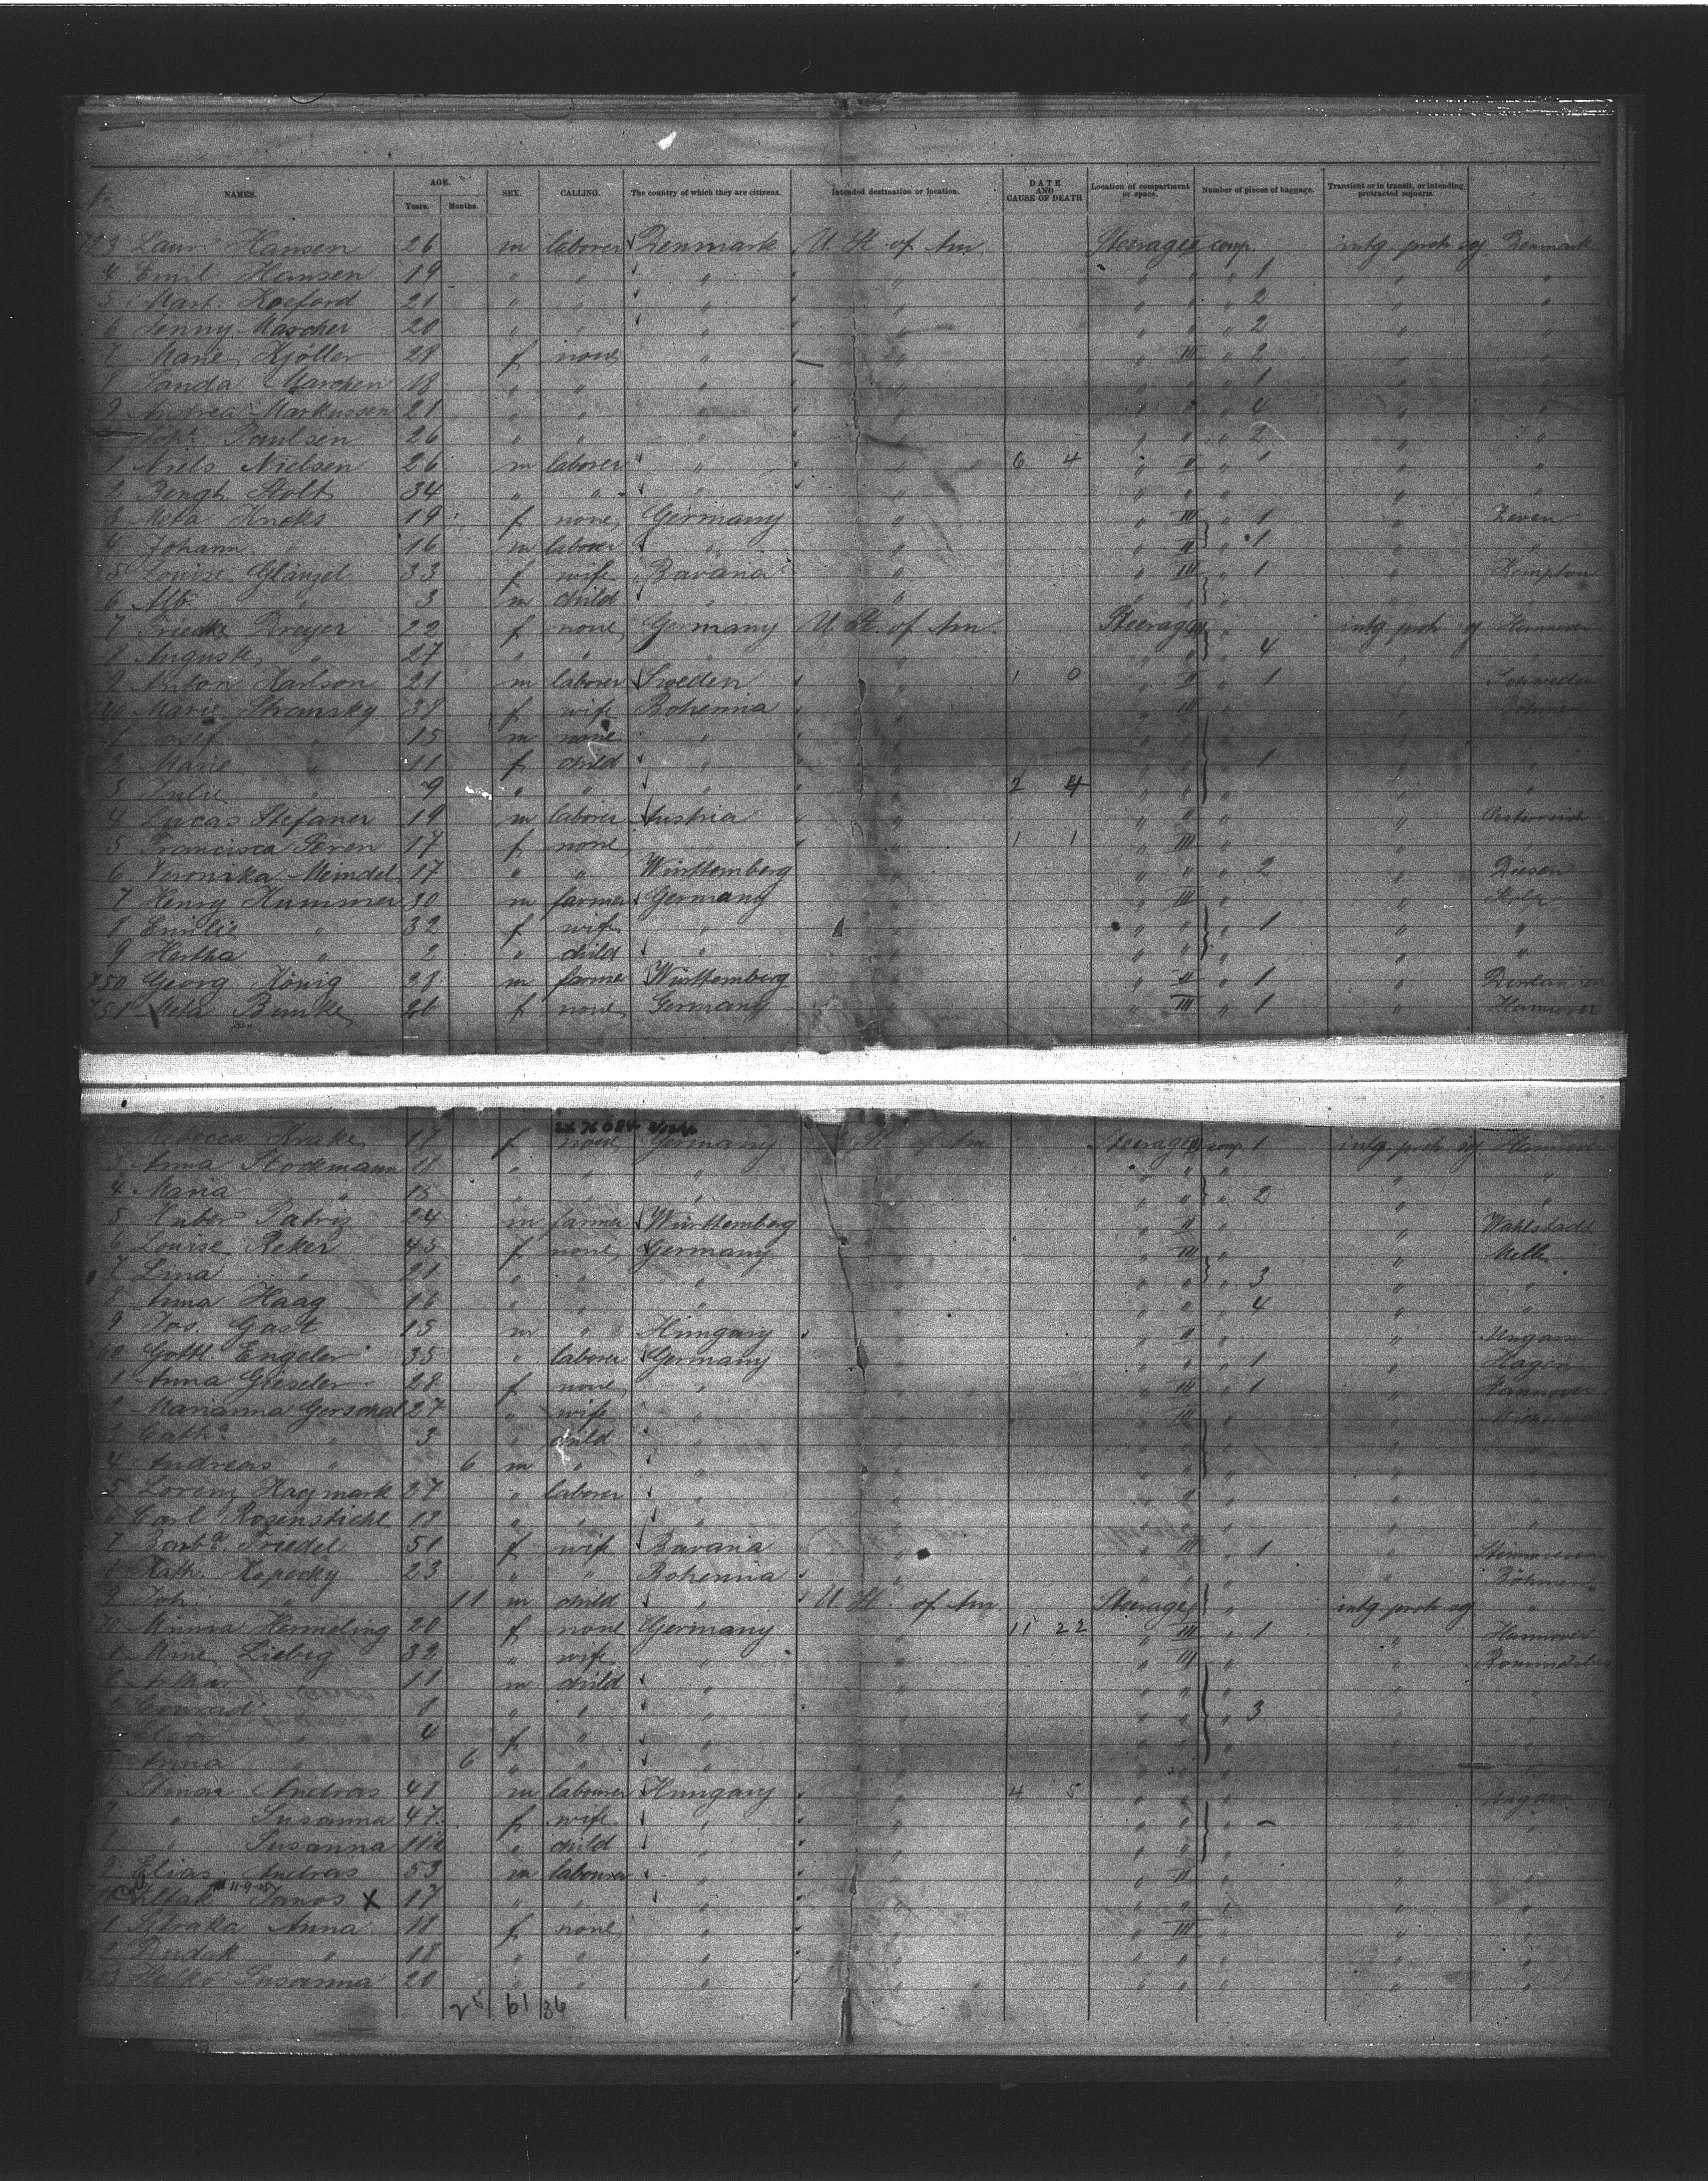 NAMES. AGE. Years. Months. SEX. CALLING. The country of which they are citizens. Intended destination or location. DATE AND CAUSE OF DEATH Location of compartment or space. Number of pieces of baggage. Transient or in transit, or intending protracted sojourn.
723 Laur. Hansen 26 m laborer Denmark U. St. of Am. Steerage comp. intg protr sog Denmark
4 Emil Hansen 19 " " " " " " " 1 " "
5 Mart. Koeford 21 " " " " " " " 2 " "
6 Jenny Mascher 20 " " " " " " " 2 " "
7 Marie Kjöller 28 f none " " " III " 2 " "
8 Marchen 18 " " " " " " " 1 " "
9 Andrea Markussen 21 " " " " " " " 4 " "
Joha. Paulsen 26 " " " " " " " 2 " "
1 Niels Nielsen 26 m laborer " " 6 4 " II " 1 " "
2 Bengt Stolt 34 " " " " " " " " "
3 Meta Hncks 19 f none Germany " " III " 1 " Zeven
4 Johann " 16 m laborer " " " II " 1 " "
5 Louise Glänzel 33 f wife Bavaria " " III " 1 " Kempton
6 Alb. " 3 m child " " " " " " "
7 Friedke Dreyer 22 f none Germany U. St. of Am. Steerage III " intg protr sog Hannover
8 August. " 27 " " " " " " " 4 " "
9 Anton Karlson 21 m laborer Sweden " 1 0 " II " 1 " Schweden
740 Marie Stransky 38 f wife Bohemia " " III " " Böhmen
1 Josef " 15 m none " " " " " " "
2 Marie " 11 f child " " " " " 1 " "
3 Julie " 9 " " " " 2 4 " " " " "
4 Lucas Stefaner 19 m laborer Austria " " II " " Oesterreich
5 Francisca Peren 17 f none " " 1 1 " III " " "
6 Veronika Meindel 17 " " Württemberg " " " " 2 " Diesen
7 Henry Kummer 30 m farmer Germany " " III " " Stolp
8 Emilie " 32 f wife " " " " " 1 " "
9 Hertha " 2 " child " " " " " " "
750 Georg König 28 m farmer Württemberg " " II " 1 "
751 Meta Bunke 20 f none Germany " " III " 1 " Hannover
Rebecca Kruke 17 f none Germany St. of Am. Steerage comp 1 intg protr sog Hannover
3 Anna Stockmann 18 " " " " " " " " "
4 Maria " 15 " " " " " " " 2 " "
5 Huber Patriz 24 m farmer Württemberg " " II " " Wahlstadt
6 Louise Reker 45 f none Germany " " III " " Melle
7 Lina " 21 " " " " " " " 3 " "
8 Anna Haag 16 " " " " " " " 4 " "
9 Jos. Gast 15 m " Hungary " " II " " Ungarn
760 Gottl. Engeler 35 " laborer Germany " " " " 1 " Hagen
1 Anna Gieseler 28 f none " " " III " 1 " Hannover
2 Marianna Gerschal 27 " wife " " " III " "
3 Catha. " 3 " child " " " " " " "
4 Andreas " 6 m " " " " " " " "
5 Lorenz Hagmark 27 " laborer " " " " " " "
6 Carl Rosenstiehl 18 " " " " " " " " "
7 Barba. Friedel 51 f wife Bavaria " " III " 1 "
8 Kath. Kopecky 23 " " Bohemia " " " " " Böhmen
9 Joh. " 11 m child " U. St. of Am. Steerage " intg protr sog "
70 Minna Hermeling 20 f none Germany " 11 22 " III " 1 " Hannover
1 Mine Liebig 32 " wife " " " III " "
2 Arthur " 11 m child " " " " " " "
3 Conrad " 1 " " " " " " " 3 " "
" 4 f " " " " " " " "
Anna " 6 " " " " " " " " "
6 Andras 48 m labourer Hungary " 4 5 " " " " Ungarn
7 " Susanna 47 f wife " " " " " - " "
8 " Susanna 11 " child " " " " " " "
9 Elias Andras 53 m labourer " " " II " " "
11-9-
Janos X 17 " " " " " " " " "
1 Straka Anna 18 f none " " " III " " "
2 Dudak " 18 " " " " " " " " "
783 Halko Susanna 20 " " " " " " " " "
25 61 36